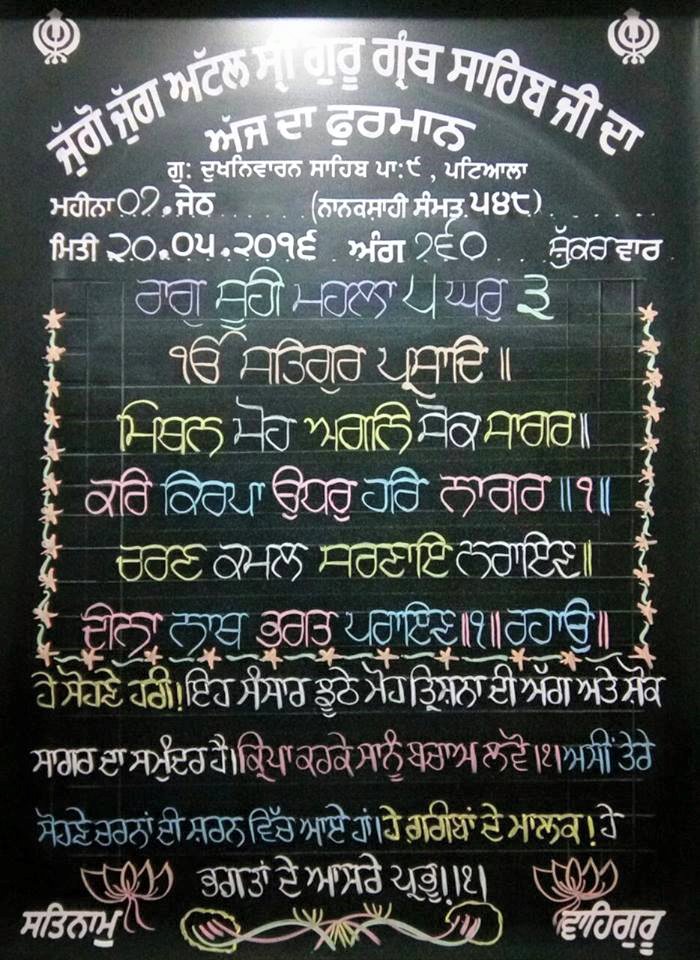 ਜੁੱਗੋ ਜੁੱਗ ਅਟੱਲ ਸ੍ਰੀ ਗੁਰੂ ਗ੍ਰੰਥ ਸਾਹਿਬ ਜੀ ਦਾ
ਅੱਜ ਦਾ ਫੁਰਮਾਨ
ਗੁ: ਦੁਖਨਿਵਾਰਨ ਸਾਹਿਬ ਪਾ:੯ , ਪਟਿਆਲਾ
ਮਹੀਨਾ ੦੭. ਜੇਠ (ਨਾਨਕਸ਼ਾਹੀ ਸੰਮਤ ੫੪੮)
ਮਿਤੀ ੨੦.੦੫.੨੦੧੬ ਅੰਗ ੭੬੦ ਸ਼ੁੱਕਰ ਵਾਰ
ਰਾਗੁ ਸੂਹੀ ਮਹਲਾ ੫ ਘਰੁ ੩
ੴ ਸਤਿਗੁਰ ਪ੍ਰਸਾਦਿ ॥
ਮਿਥਨ ਮੋਹ ਅਗਨਿ ਸੋਕ ਸਾਗਰ॥
ਕਰਿ ਕਿਰਪਾ ਉਧਰੁ ਹਰਿ ਨਾਗਰ ॥੧॥
ਚਰਣ ਕਮਲ ਸਰਣਾਇ ਨਰਾਇਣ॥
ਦੀਨਾ ਨਾਥ ਭਗਤ ਪਰਾਇਣ॥੧॥ਰਹਾਉ॥
ਹੇ ਸੋਹਣੇ ਹਰੀ!ਇਹ ਸੰਸਾਰ ਝੂਠੇ ਮੋਹ ਤ੍ਰਿਸ਼ਨਾ ਦੀ ਅੱਗ ਅਤੇ ਸ਼ੋਕ
ਸਾਗਰ ਦਾ ਸਮੁੰਦਰ ਹੈ।ਕ੍ਰਿਪਾ ਕਰਕੇ ਸਾਨੂੰ ਬਚਾਅ ਲਵੋ।੧।ਅਸੀਂ ਤੇਰੇ
ਸੋਹਣੇ ਚਰਨਾਂ ਦੀ ਸ਼ਰਨ ਵਿੱਚ ਆਏ ਹਾਂ।ਹੇ ਗ਼ਰੀਬਾਂ ਦੇ ਮਾਲਕ! ਹੇ
ਭਗਤਾਂ ਦੇ ਆਸਰੇ ਪ੍ਰਭੂ!।੧।
ਸਤਿਨਾਮੁ ਵਾਹਿਗੁਰੂ